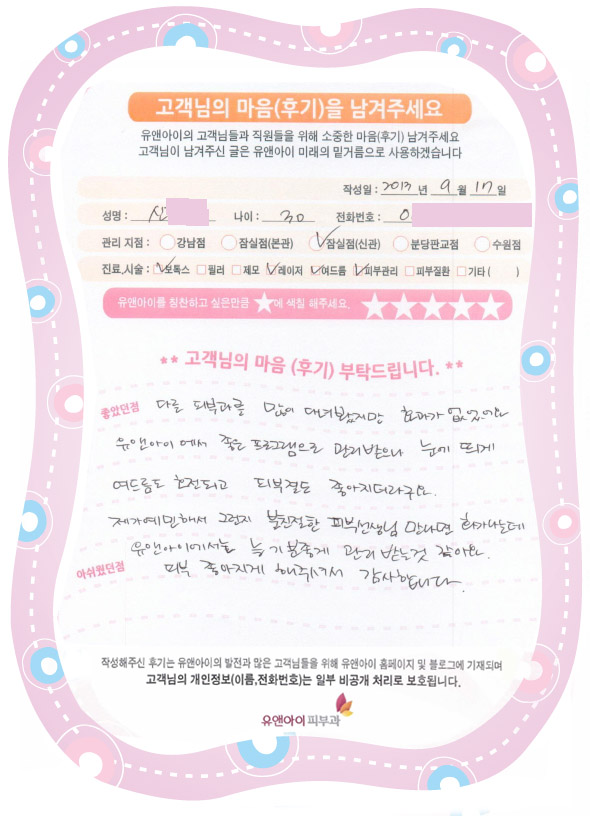 고객님의 마음(후기)을 남겨주세요
유앤아이의 고객님들과 직원들을 위해 소중한 마음(후기) 남겨주세요
고객님이 남겨주신 글은 유앤아이 미래의 밑거름으로 사용하겠습니다
작성일 : 2013 년 9 월 17 일
성명 : 신 나이 : 30 전화번호 : 0
관리 지점 : 강남점 잠실점(본관) 잠실점(신관) 분당판교점 수원점
진료,시술 : 보톡스 필러 제모 레이저 여드름 피부관리 피부질환 기타 ( )
유앤아이를 칭찬하고 싶은만큼 ★에 색칠 해주세요. ★★★★★
** 고객님의 마음 (후기) 부탁드립니다. **
좋았던점 다른 피부과를 많이 다녀봤지만 효과가 없었어요
유앤아이 에서 좋은 프로그램으로 관리받으니 눈에 띄게
여드름도 호전되고 피부결도 좋아지더라구요.
제가예민해서 그런지 불친절한 피부선생님 만나면 화가나는데
유앤아이에서는 늘 기분좋게 관리 받는것 같아요.
아쉬웠던점 피부 좋아지게 해주셔서 감사합니다.
작성해주신 후기는 유앤아이의 발전과 많은 고객님들을 위해 유앤아이 홈페이지 및 블로그에 기재되며
고객님의 개인정보(이름,전화번호)는 일부 비공개 처리로 보호됩니다.
유앤아이 피부과